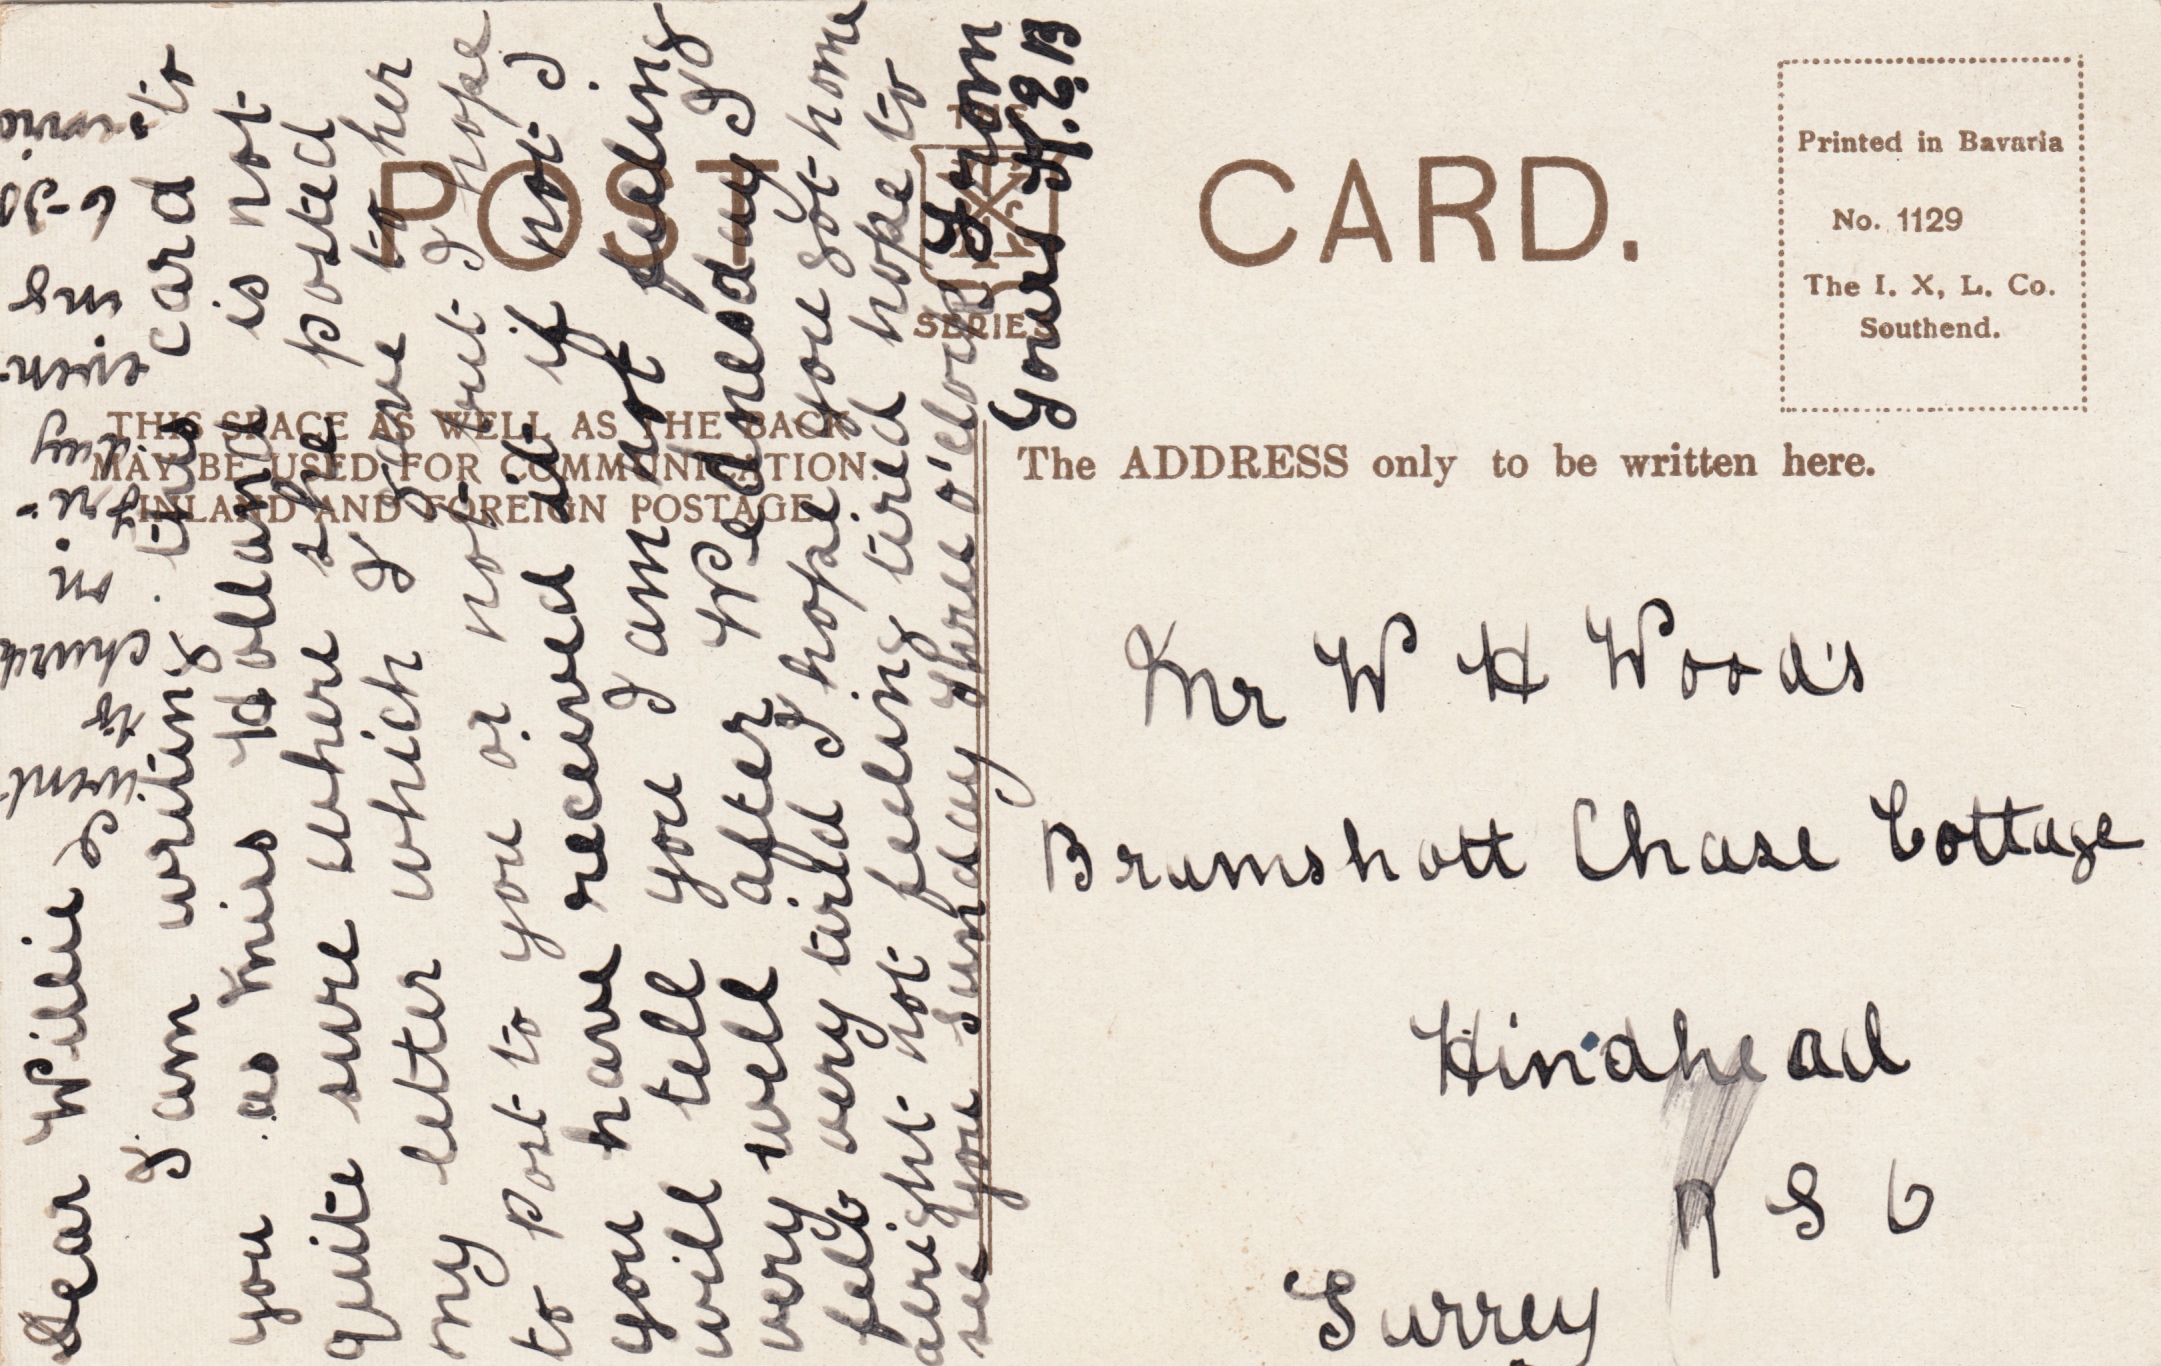 POST CARD.
THE
IXL
SERIES
THIS SPACE AS WELL AS THE BACK
MAY BE USED FOR COMMUNICATION.
INLAND AND FOREIGN POSTAGE.
The ADDRESS only to be written here.
Printed in Bavaria
No. 1129
The I. X, L. Co.
Southend.
Dear Willie
I am writing this card to
you as Miss Holland is not
quite sure where she posted
my letter which I gave to her
to post to you or not but I hope
you have received it if not I
will tell you I am not feeling
very well after Wednesday I
felt very tird I hope you got home
aright not feeling tired hope to
see you Sunday three o'clock From
Yours H.E.B
I went
to church
in
day
even
ing
6-30
Mr W H Wood's
Bramshott Chase Cottage
Hindhead
R S O
Surrey